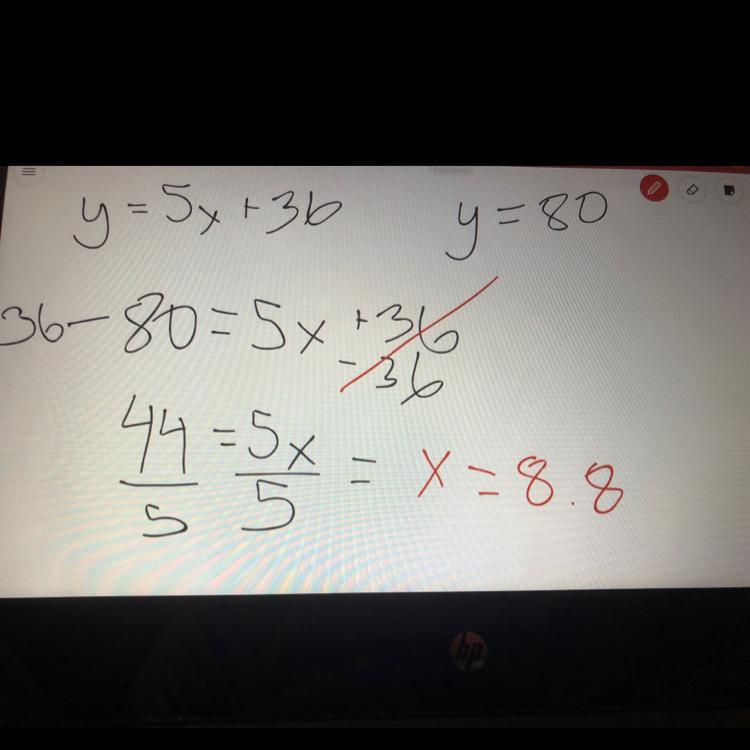 y = 5x + 36 y = 80
36 - 80 = 5x + 36
- 36
44 = 5x = x = 8.8
5 5
hp